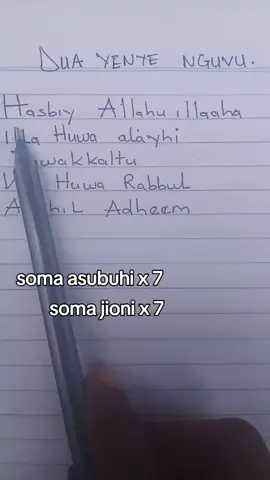 DUA YENYE NGUVU.
Hasbiy Allahu illaaha
Huwa alayhi
Huwa Rabbul
Adheem
soma asubuhi x 7
soma jioni x 7